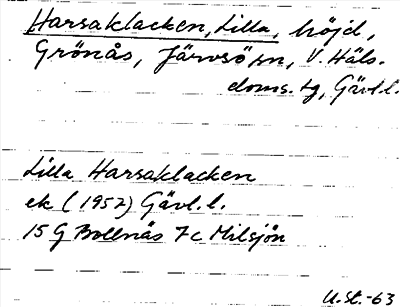 Harsaklacken, Lilla, höjd,
Grönås, Järvsö sn, V. Häls.
doms. tg, Gävl.l.
Lilla Harsaklacken
ek (1957) Gävl.l.
15G Bollnäs 7c Milsjön
U.St.-63